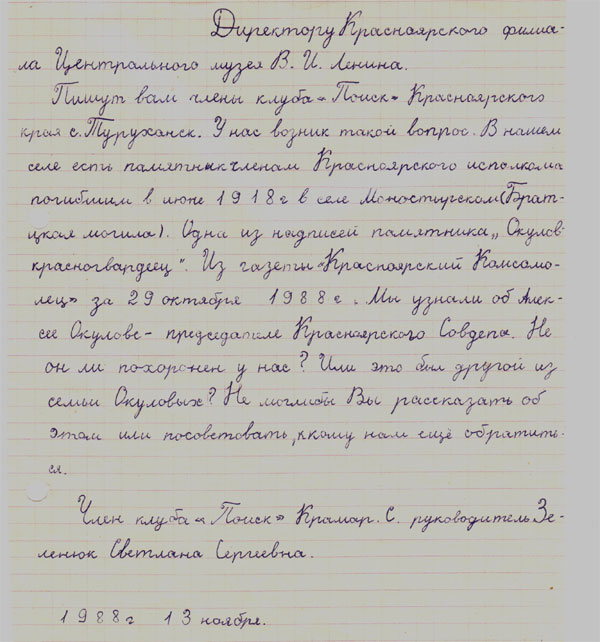 Директору Красноярского филиа-
ла Центрального музея В. И. Ленина.
Пишут вам члены клуба «Поиск» Красноярского
края с. Туруханск. У нас возник такой вопрос. В нашем
селе есть памятник членам Красноярского исполкома
погибшим в июне 1918г в селе Моностырском (Брат-
цкая могила). Одна из надписей памятника „Окулов-
красногвардеец". Из газеты «Красноярский Комсомо-
лец» за 29 октября 1988г. Мы узнали об Алек-
сее Окулове - председателе Красноярского Совдепа. Не
он ли похоронен у нас? Или это был другой из
семьи Окуловых? Не моглибы Вы рассказать об
этом или посоветовать, ккому нам ещё обратить-
ся.
Член клуба «Поиск» Крамар. С. руководитель Зе-
ленюк Светлана Сергеевна.
1988г 13 ноября.